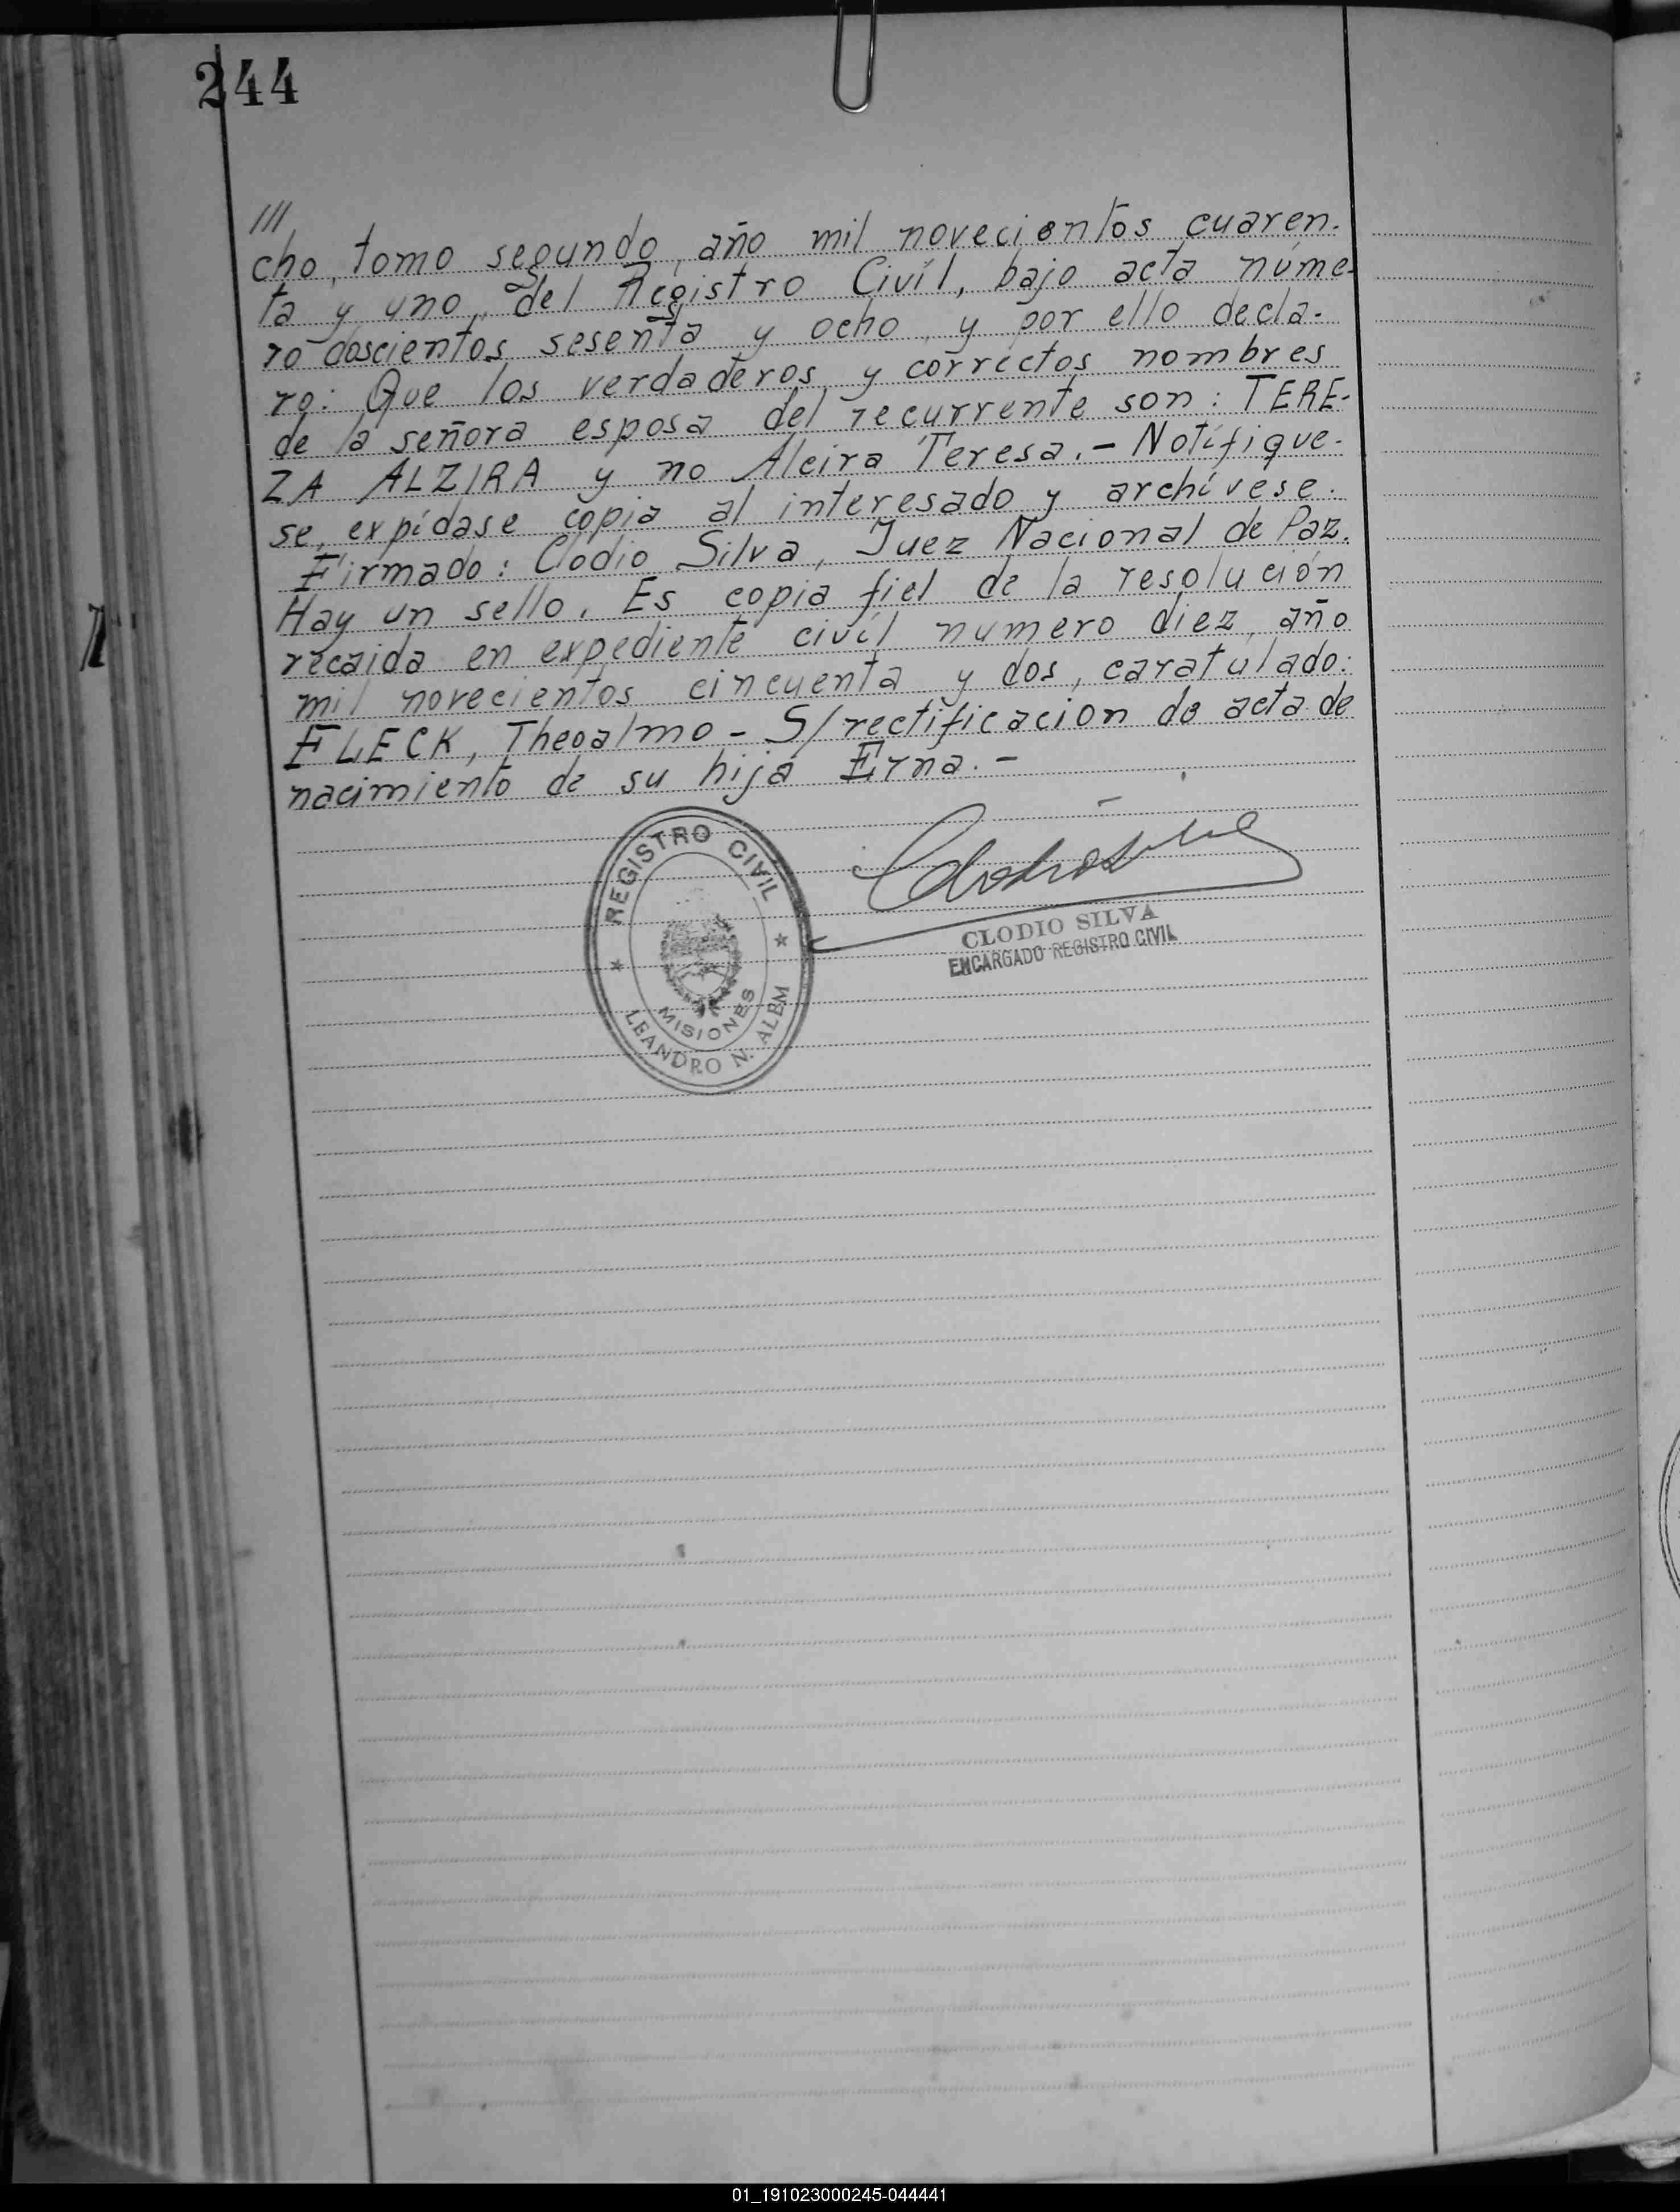 244
///
cho, tomo segundo, año mil novecientos cuaren-
ta y uno, del Registro Civil, bajo acta núme-
ro doscientos sesenta y ocho, y por ello decla-
ro: Que los verdaderos y correctos nombres
de la señora esposa del recurrente son: TERE-
ZA ALZIRA y no Alcira Teresa.- Notifíque-
se, expídase copia al interesado y archívese.
Firmado: Clodio Silva, Juez Nacional de Paz.
Hay un sello. Es copia fiel de la resolución
recaida en expediente civil numero diez, año
mil novecientos cincuenta y dos, caratulado:
FLECK, Theoalmo - S/rectificacion de acta de
nacimiento de su hija Erna.-
REGISTRO CIVIL
MISIONES
LEANDRO N. ALEM
CLODIO SILVA
ENCARGADO REGISTRO CIVIL
01_191023000245-044441